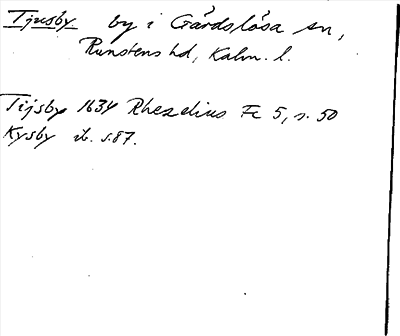 Tjusby. by i Gårdslösa sn,
Runstens hd, Kalm. l.
Tijsby 1634 Rhezelius Fc 5, s. 50
Kysby ib. s. 87.